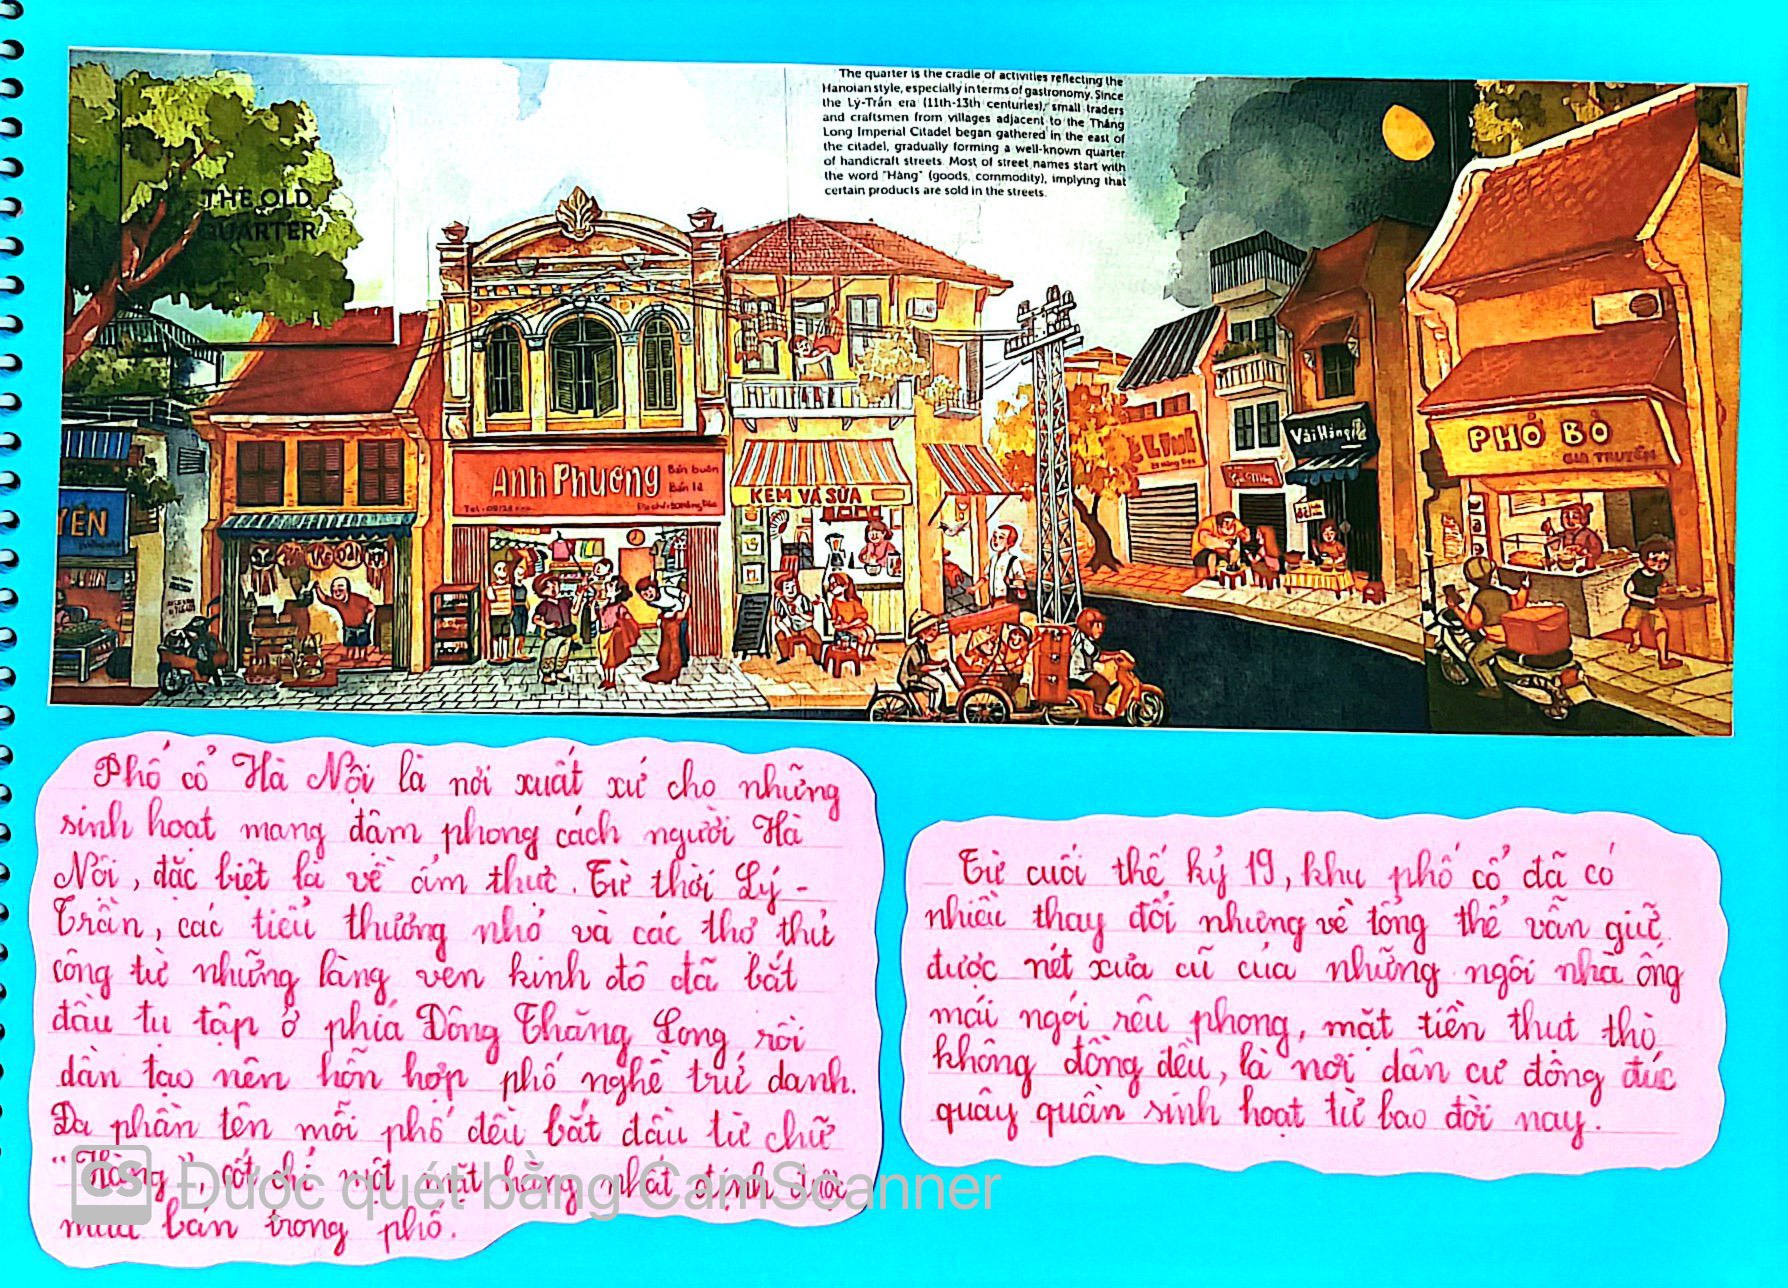 The quarter is the cradle of activities reflecting the
Hanoian style, especially in terms of gastronomy. Since
the Lý-Trần era (11th-13th centuries), small traders
and craftsmen from villages adjacent to the Thăng
Long Imperial Citadel began gathered in the east of
the citadel, gradually forming a well-known quarter
of handicraft streets. Most of street names start with
the word "Hàng" (goods, commodity), implying that
certain products are sold in the streets.
THE OLD
QUARTER
YÊN
Anh Phương
Bán buôn
Bán lẻ
KEM VÀ SỮA
Vải
PHỞ BÒ
GIA TRUYỀN
Phố cổ Hà Nội là nơi xuất xứ cho những
sinh hoạt mang đậm phong cách người Hà
Nội, đặc biệt là về ẩm thực. Từ thời Lý -
Trần, các tiểu thương nhỏ và các thợ thủ
công từ những làng ven kinh đô đã bắt
đầu tụ tập ở phía Đông Thăng Long rồi
dần tạo nên hỗn hợp phố nghề trứ danh.
Đa phần tên mỗi phố đều bắt đầu từ chữ
"Hàng", cốt chỉ một mặt hàng nhất định được
mua bán trong phố.
Từ cuối thế kỷ 19, khu phố cổ đã có
nhiều thay đổi nhưng về tổng thể vẫn giữ
được nét xưa cũ của những ngôi nhà ống
mái ngói rêu phong, mặt tiền thụt thò
không đồng đều, là nơi dân cư đông đúc
quây quần sinh hoạt từ bao đời nay.
CS Được quét bằng CamScanner